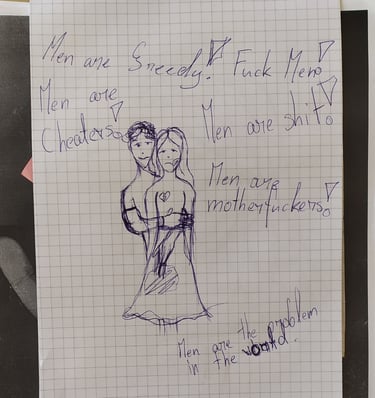 Men are Greedy! Fuck Men!
Men are
Cheaters!
Men are shit!
Men are
motherfuckers!
Men are the problem
in the world.